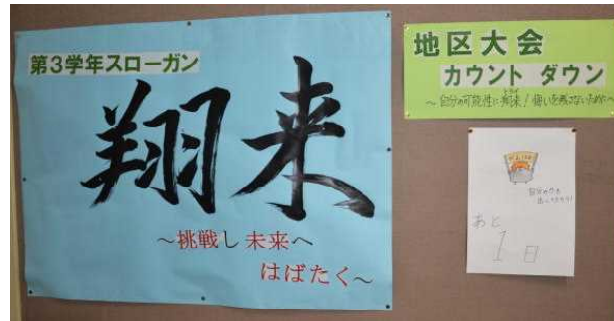 第3学年スローガン
翔来
~挑戦し未来へ
はばたく~
地区大会
カウント ダウン
~自分の可能性に翔来!悔いを残さないために~
自分の力を
出しきろう!
あと
1日